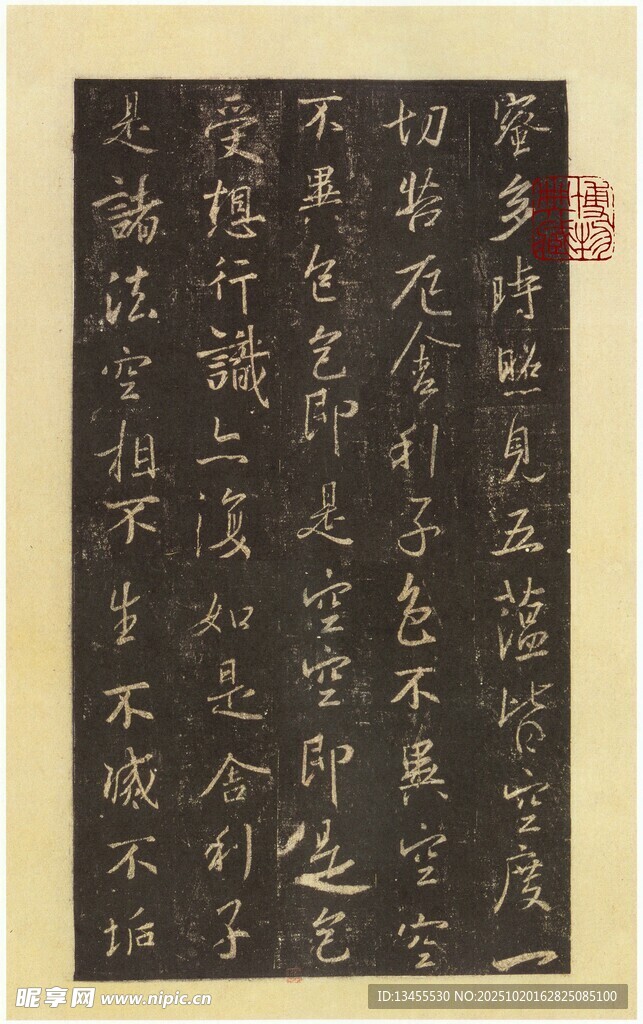 蜜多時照見五蘊皆空度一
切苦厄舍利子色不異空空
不異色色即是空空即是色
受想行識亦復如是舍利子
是諸法空相不生不滅不垢
博物
昵享网 www.nipic.cn
ID:13455530 NO:20251020162825085100